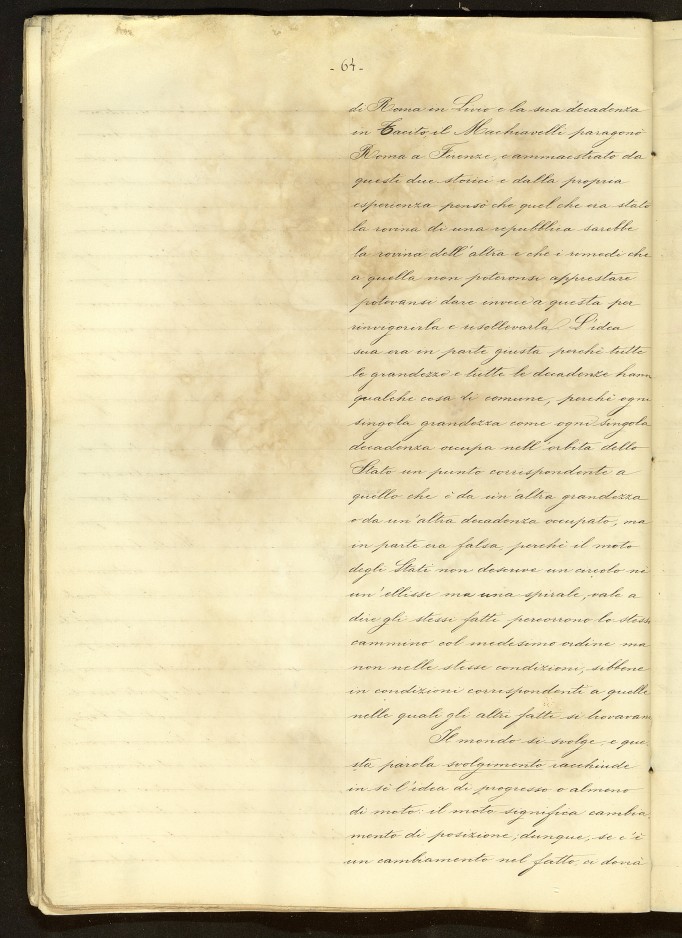 - 64 -
di Roma in Livio e la sua decadenza
in Tacito il Machiavelli paragonò
Roma a Firenze, e ammaestrato da
questi due storici e dalla propria
esperienza pensò che quel che era stato
la rovina di una repubblica sarebbe
la rovina dell'altra e che i rimedi che
a quella non poteronsi apprestare
potevansi dare invece a questa per
rinvigorirla e risollevarla. L'idea
sua era in parte giusta perchè tutte
le grandezze e tutte le decadenze hann
qualche cosa di comune, perchè ogni
singola grandezza come ogni singola
decadenza occupa nell'orbita dello
Stato un punto corrispondente a
quello che è da un'altra grandezza
o da un'altra decadenza occupato, ma
in parte era falsa, perchè il moto
degli Stati non descrive un circolo nè
un'ellisse ma una spirale, vale a
dire gli stessi fatti percorrono lo stess
cammino col medesimo ordine ma
non nelle stesse condizioni, sibbene
in condizioni corrispondenti a quelle
nelle quali gli altri fatti si trovavan
Il mondo si svolge, e que
sta parola svolgimento racchiude
in sè l'idea di progresso o almeno
di moto: il moto significa cambia
mento di posizione, dunque, se c'è
un cambiamento nel fatto, ci dovrà